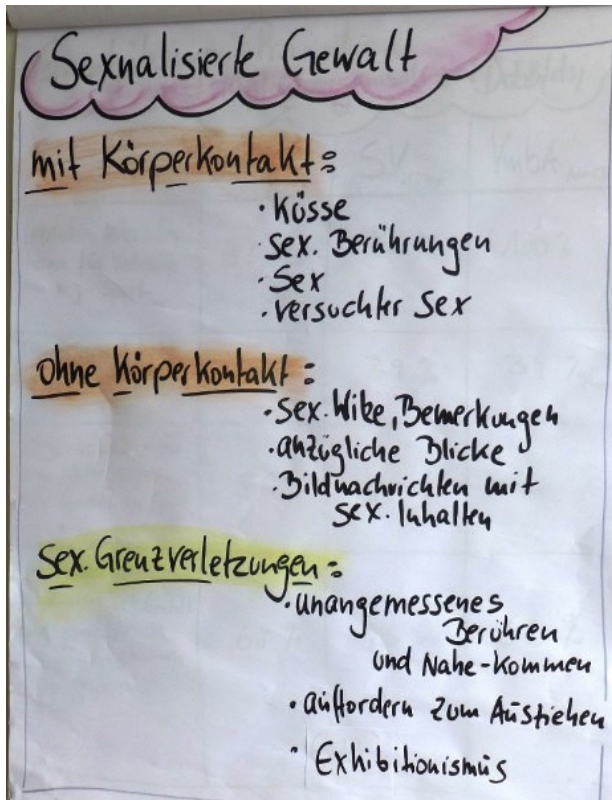 Sexualisierte Gewalt
mit Körperkontakt:
· Küsse
· sex. Berührungen
· Sex
· versuchter Sex
ohne Körperkontakt:
· sex. Wite, Bemerkungen
· anzügliche Blicke
· Bildnachrichten mit
sex. Inhalten
sex. Grenzverletzungen:
· unangemessenes
Berühren
und Nahe-kommen
· auffordern zum Ausziehen
· Exhibitionismus